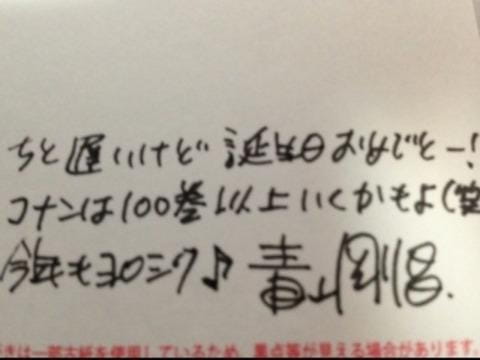 ちと遅いけど誕生日おめでとー!
コナンは100巻以上いくかもよ(笑
今年もヨロシク♪ 青山剛昌.
きは一部古紙を使用しているため、黒点等が見える場合があります。